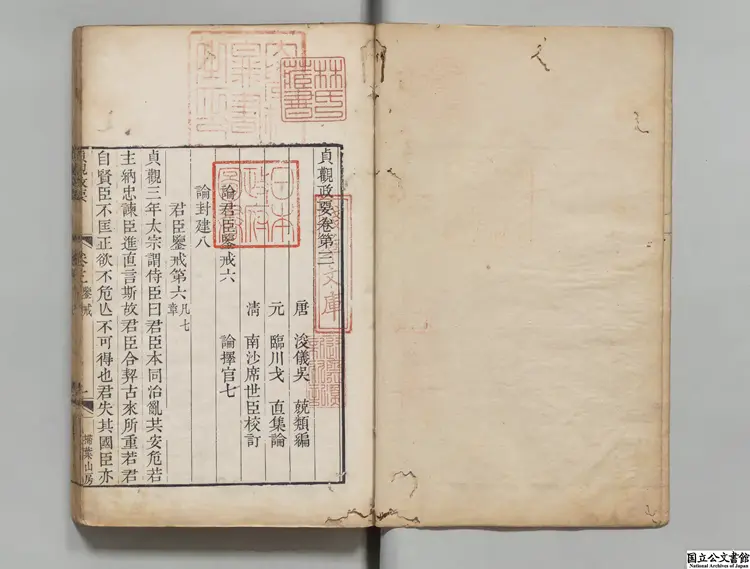 林氏藏書
日本政府圖書
文庫
貞觀政要卷第三
唐 浚儀吳 兢類編
元 臨川戈 直集論
清 南沙席世臣校訂
論君臣鑒戒六 論擇官七
論封建八
君臣鑒戒第六 凡七章
貞觀三年太宗謂侍臣曰君臣本同治亂共安危若
主納忠諫臣進直言斯故君臣合契古來所重若君
自賢臣不匡正欲不危亾不可得也君失其國臣亦
貞觀政要 卷三 鑒戒 一 掃葉山房
国立公文書館
National Archives of Japan